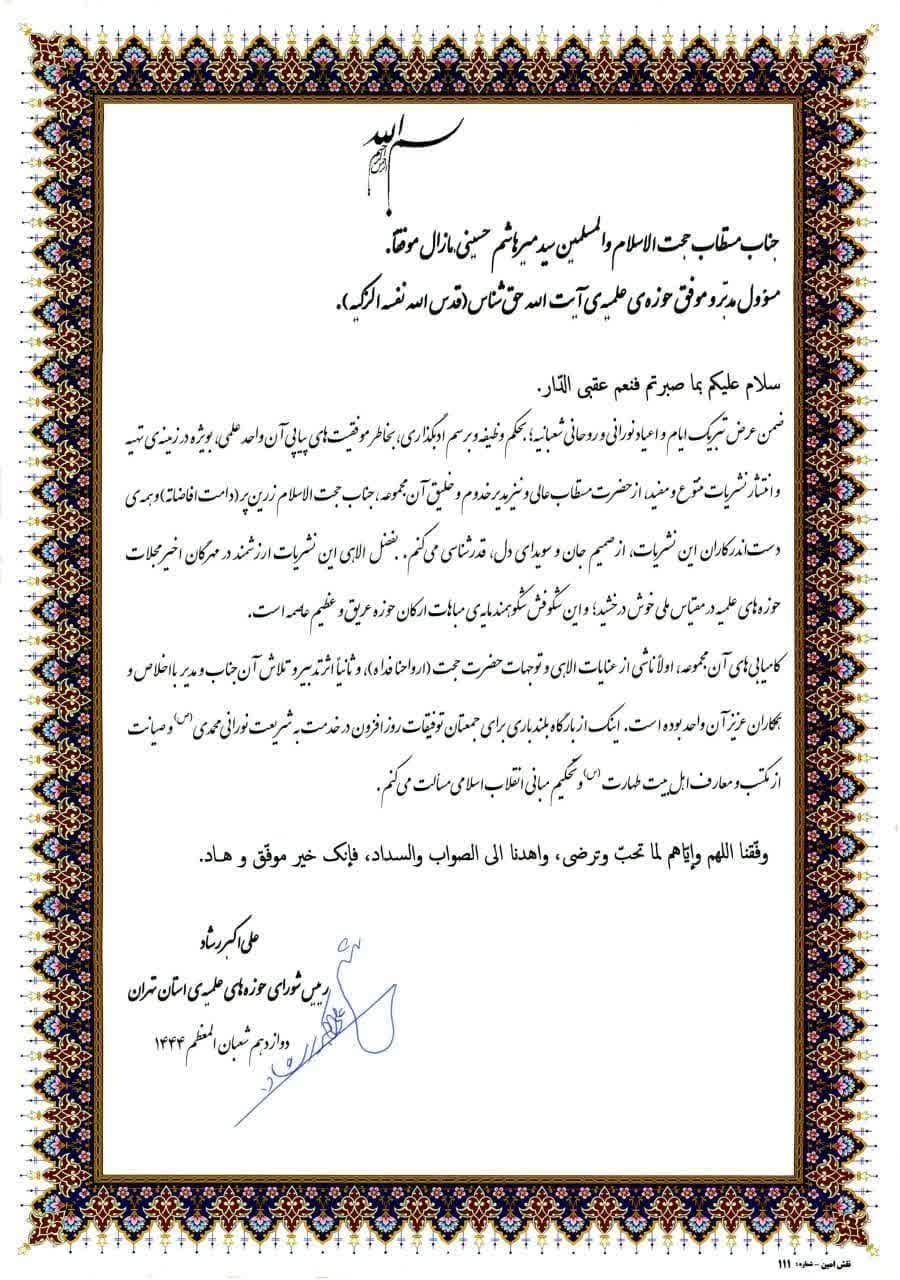 بسم الله الرحمن الرحیم
جناب مستطاب حجت الاسلام والمسلمین سید میرهاشم حسینی مازال موفقاً.
مسؤول مدبّر و موفق حوزه‌ی علمیه‌ی آیت الله حق شناس (قدس الله نفسه الزکیه).
سلام علیکم بما صبرتم فنعم عقبی الدّار.
ضمن عرض تبریک ایام و اعیاد نورانی و روحانی شعبانیه؛ بحکم وظیفه و برسم ادبگذاری، بخاطر موفقیت‌های پیاپی آن واحد علمی، بویژه در زمینه‌ی تهیه
و انتشار نشریات متنوع و مفید، از حضرت مستطاب عالی و نیز مدیر خدوم و خلیق آن مجموعه، جناب حجت الاسلام زرین پر (دامت افاضاته) و همه‌ی
دست‌اندرکاران این نشریات، از صمیم جان و سویدای دل، قدرشناسی می‌کنم. بفضل الاهی این نشریات ارزشمند در مهرگان اخیر مجلات
حوزه‌های علمیه در مقیاس ملی خوش درخشید؛ و این شکوفش شکوهمند مایه‌ی مباهات ارکان حوزه عریق و عظیم عاصمه است.
کامیابی‌های آن مجموعه، اولاً ناشی از عنایات الاهی و توجهات حضرت حجت (ارواحنا فداه)، و ثانیاً اثر تدبیر و تلاش آن جناب و مدیر بااخلاص و
همکاران عزیز آن واحد بوده است. اینک از بارگاه بلند باری برای جمعتان توفیقات روزافزون در خدمت به شریعت نورانی محمدی (ص) و صیانت
از مکتب و معارف اهل بیت طهارت (س) و تحکیم مبانی انقلاب اسلامی مسألت می‌کنم.
وفّقنا اللهم وإيّاهم لما تحبّ وترضى، واهدنا الى الصواب والسداد، فإنک خیر موفّق و هـاد.
علی اکبر رشاد
رییس شورای حوزه‌های علمیه‌ی استان تهران
دوازدهم شعبان المعظم ۱۴۴۴
نقش امین - شماره: ۱۱۱